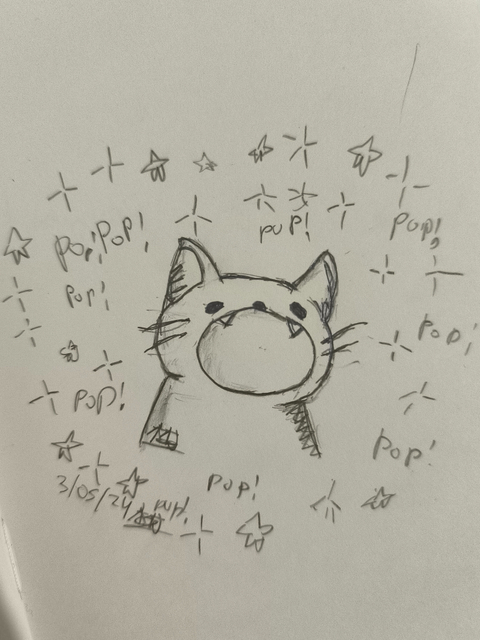 pop!
Pop!
Pop!
Pop!
pop!
Pop!
Pop!
Pop!
Pop!
Pop!
3/05/24
pop!